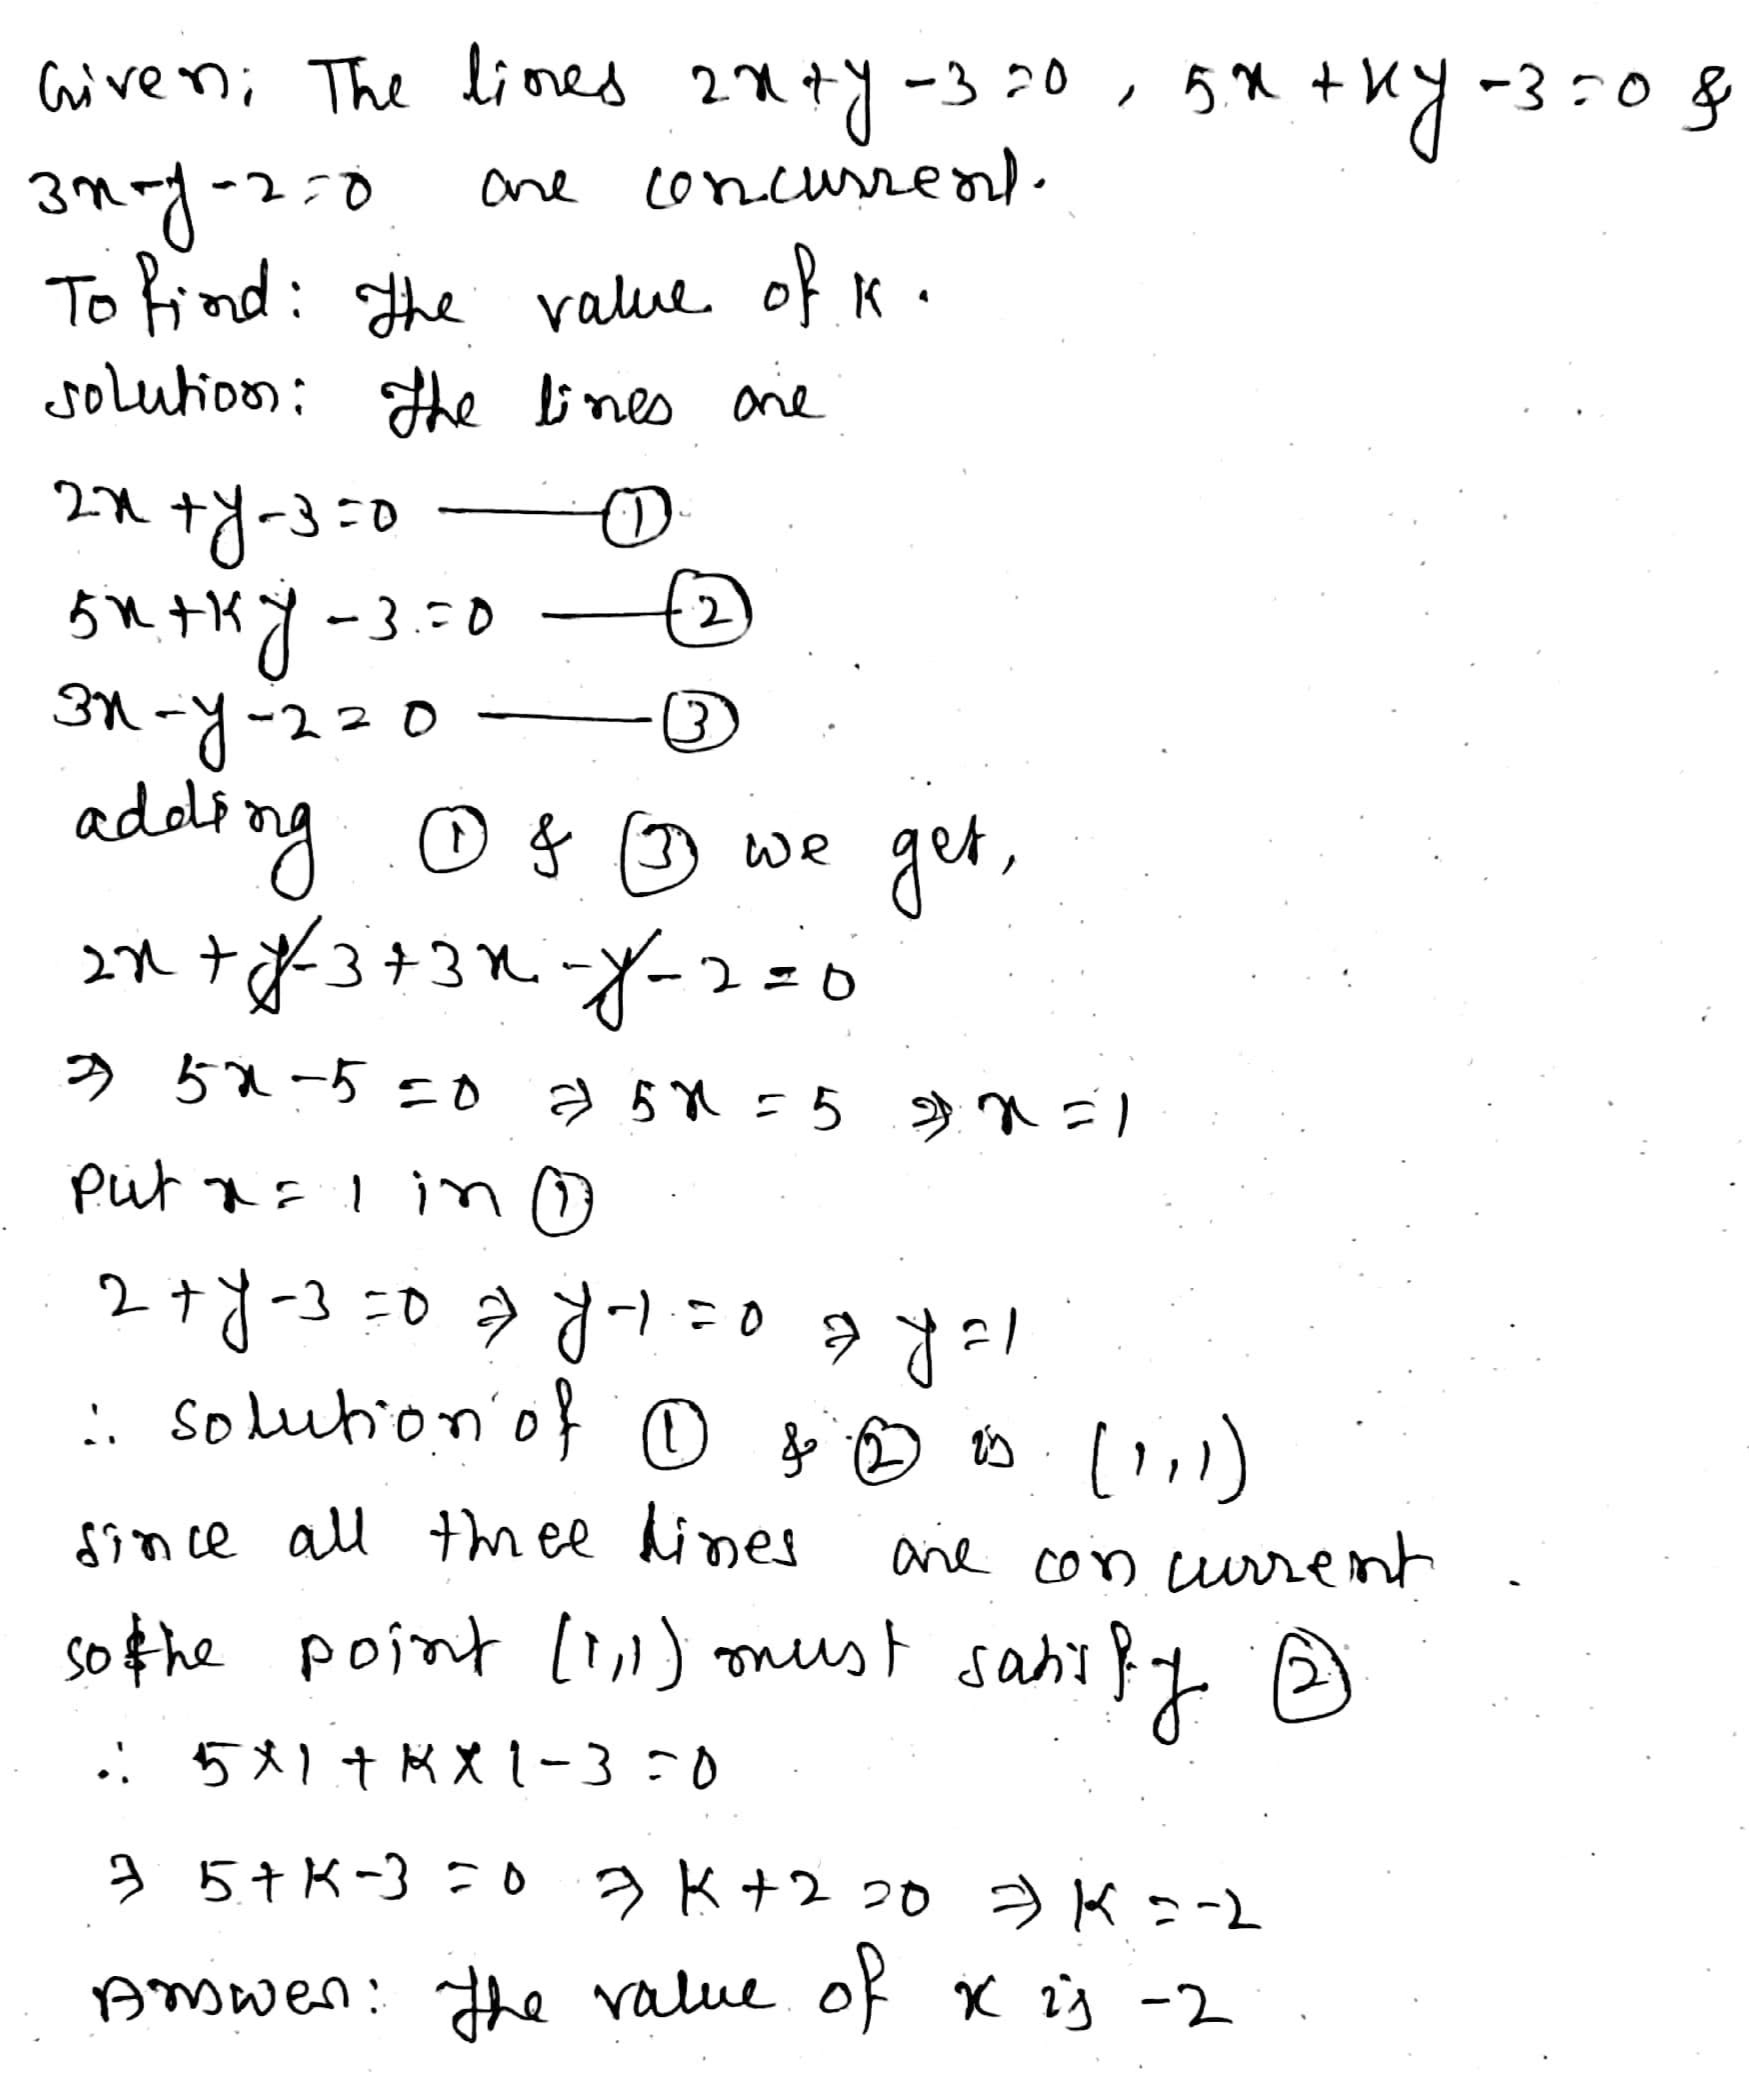 Given: The lines 2x+y-3=0, 5x+ky-3=0 &
3x-y-2=0 are concurrent.
To find: The value of k.
solution: The lines are
2x+y-3=0 —— ①
5x+ky-3=0 —— ②
3x-y-2=0 —— ③
adding ① & ③ we get,
2x+y-3+3x-y-2=0
⇒ 5x-5=0 ⇒ 5x=5 ⇒ x=1
put x=1 in ①
2+y-3=0 ⇒ y-1=0 ⇒ y=1
∴ solution of ① & ② is (1,1)
since all three lines are concurrent.
so the point (1,1) must satisfy ②
∴ 5×1+k×1-3=0
⇒ 5+k-3=0 ⇒ k+2=0 ⇒ k=-2
Answer: The value of k is -2.